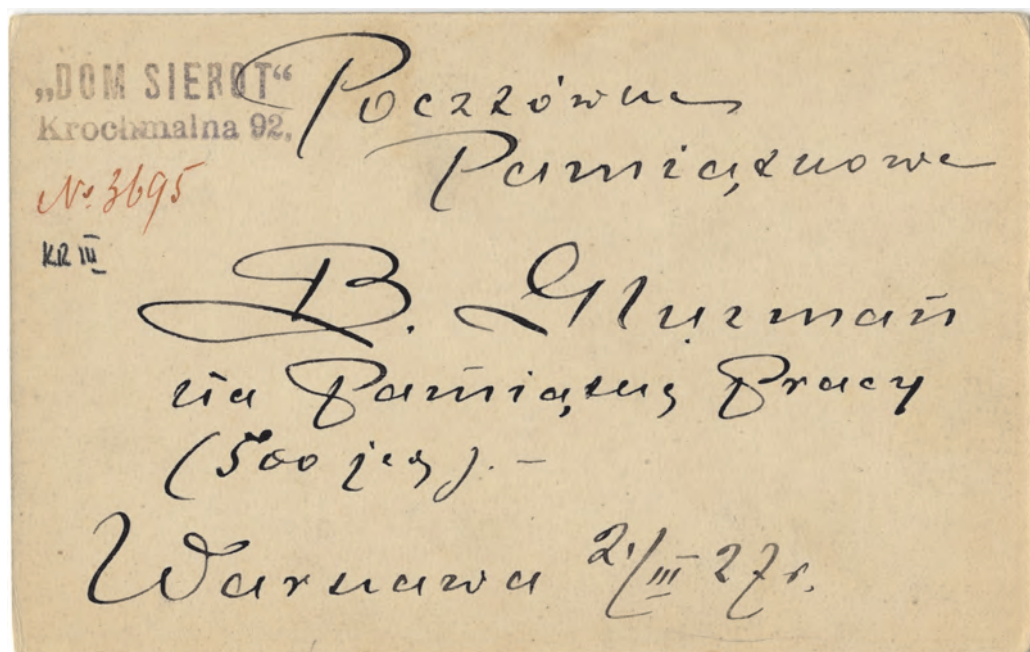 „DOM SIEROT“
Krochmalna 92.
№ 3695
KR III
Pocztówka
Pamiątkowa
B. Gluzman
na Pamiątkę Pracy
(500 jed). –
Warszawa 2/III 27 r.